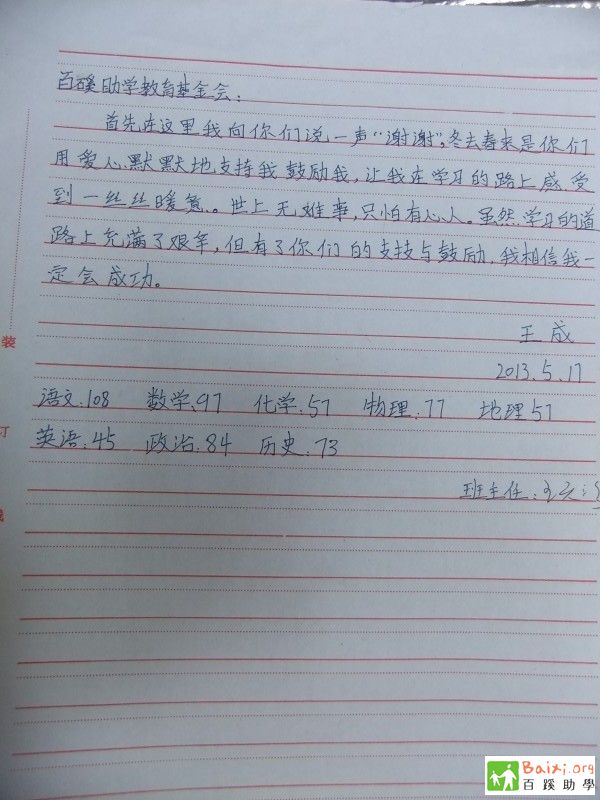 百蹊助学教育基金会：
首先在这里我向你们说一声“谢谢”。冬去春来是你们
用爱心默默地支持我鼓励我，让我在学习的路上感受
到一丝丝暖意。世上无难事，只怕有心人。虽然学习的道
路上充满了艰辛，但有了你们的支持与鼓励，我相信我一
定会成功。
王成
2013.5.17
装
语文:108 数学:97 化学:57 物理:77 地理57
订
英语:45 政治:84 历史:73
班主任:
线
Baixi.org
百蹊助學